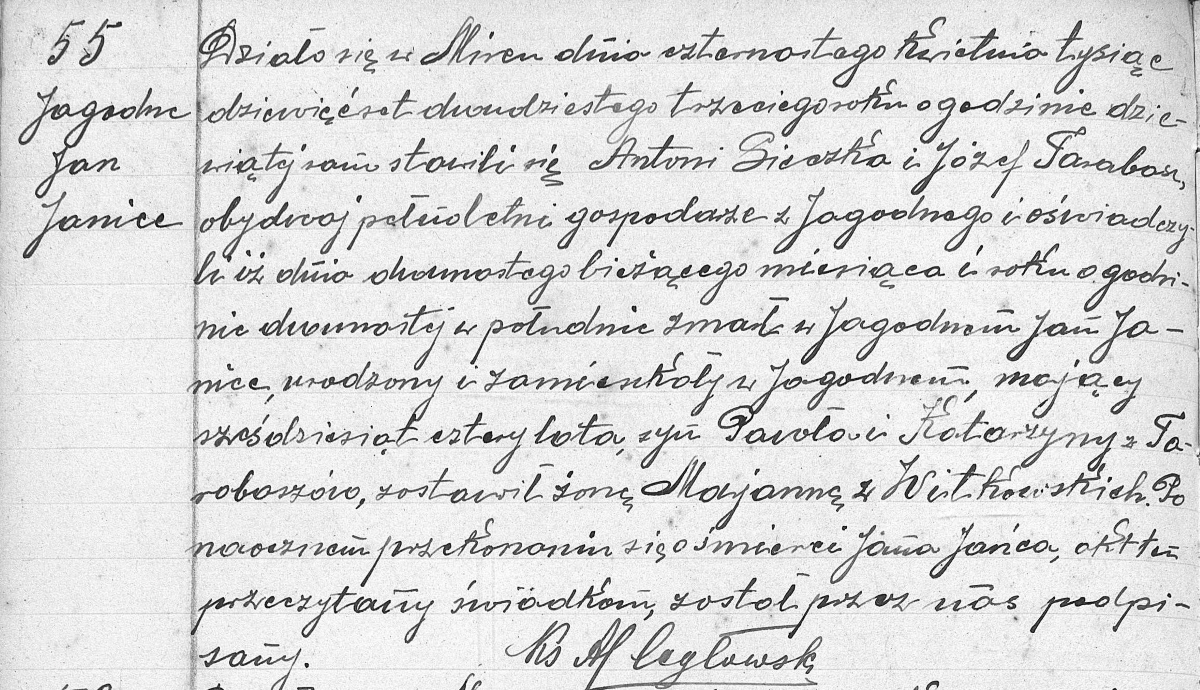 55
Jagodne
Jan
Janiec
Działo się w Mircu dnia czternastego kwietnia tysiąc
dziewięćset dwudziestego trzeciego roku o godzinie dzie-
wiątej rano stawili się Antoni Sieczka i Józef Tarabasz,
obydwaj pełnoletni gospodarze z Jagodnego i oświadczy-
li iż dnia dwunastego bieżącego miesiąca i roku o godzi-
nie dwunastej w południe zmarł w Jagodnem Jan Ja-
niec, urodzony i zamieszkały w Jagodnem, mający
sześdziesiąt cztery lata, syn Pawła i Katarzyny z Ta-
robaszów, zostawił żonę Marjannę z Witkowskich. Po
naocznem przekonaniu się o śmierci Jana Jańca, akt ten
przeczytany świadkom, został przez nas podpi-
sany. Ks M Cegłowski